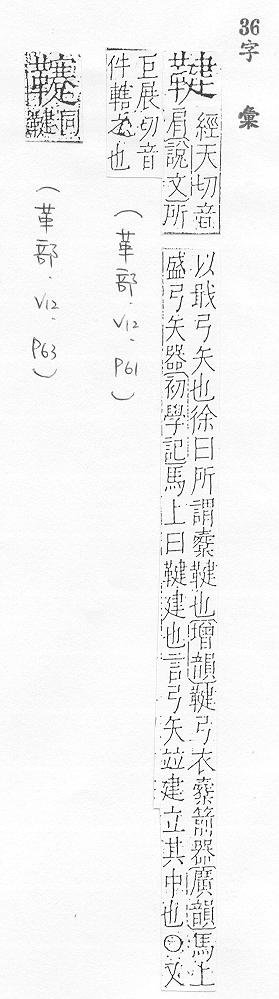 36字 彙
鞬
經天切音
肩說文所
以戢弓矢也徐曰所謂櫜鞬也增韻鞬弓衣櫜箭器廣韻馬上
盛弓矢器初學記馬上曰鞬建也言弓矢竝建立其中也○又
巨展切音
件轄之也
(革部.V12.P61)
同
鞬
(革部.V12.P63)